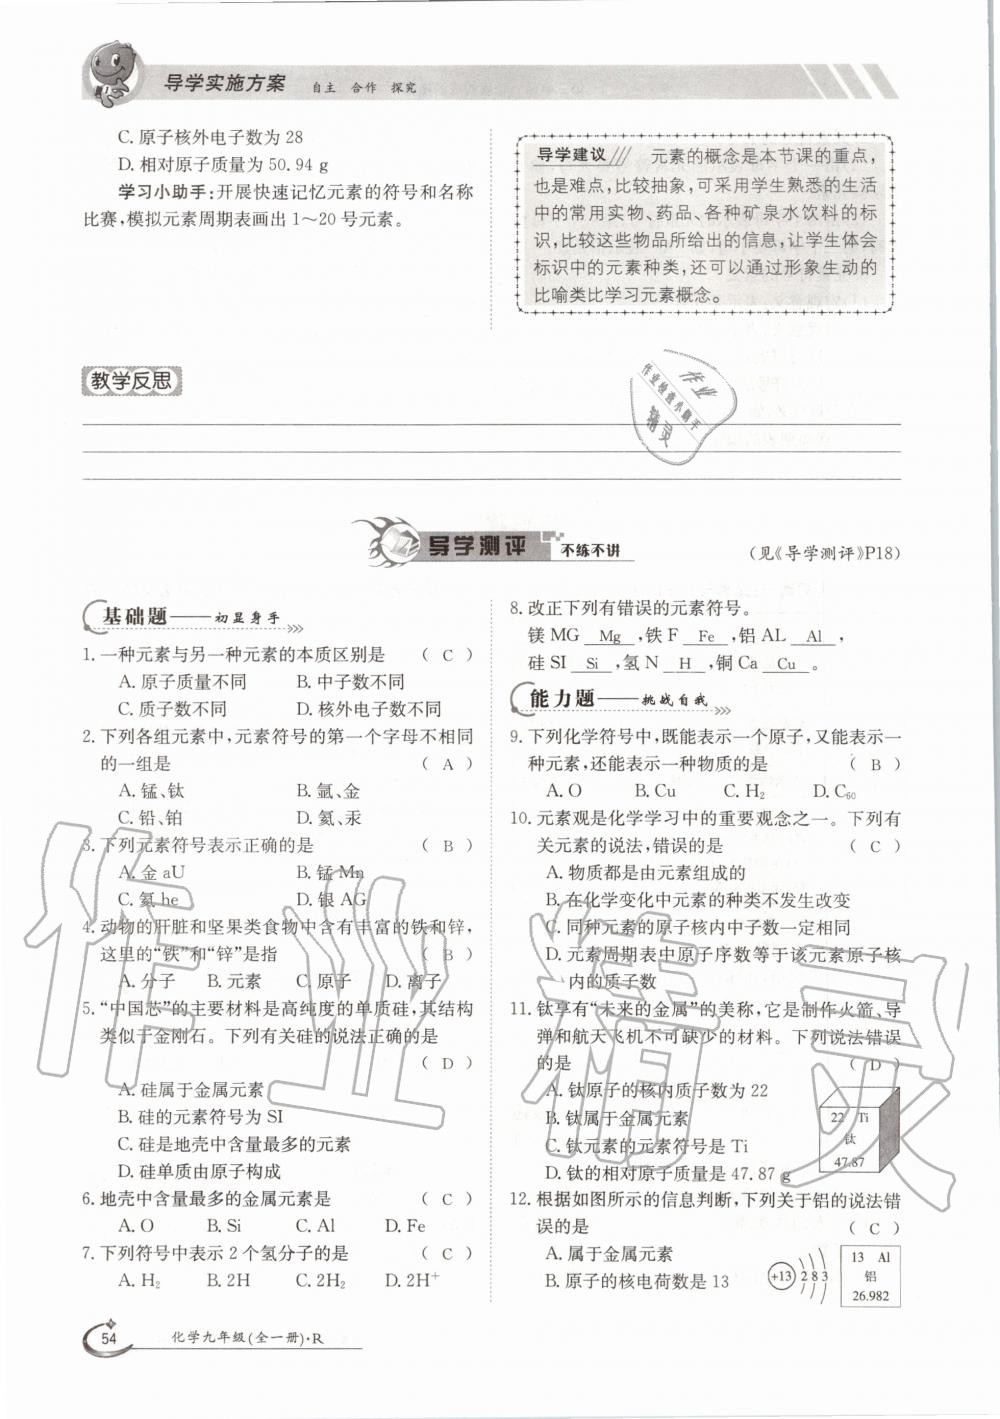 导学实施方案 自主 合作 探究
C. 原子核外电子数为 28
D. 相对原子质量为 50.94 g
学习小助手:开展快速记忆元素的符号和名称
比赛,模拟元素周期表画出 1～20 号元素。
导学建议 元素的概念是本节课的重点,
也是难点,比较抽象,可采用学生熟悉的生活
中的常用实物、药品、各种矿泉水饮料的标
识,比较这些物品所给出的信息,让学生体会
标识中的元素种类,还可以通过形象生动的
比喻类比学习元素概念。
教学反思
作业
作业检查小助手
精灵
导学测评 不练不讲
(见《导学测评》P18)
基础题——初显身手
1. 一种元素与另一种元素的本质区别是 ( C )
A. 原子质量不同 B. 中子数不同
C. 质子数不同 D. 核外电子数不同
2. 下列各组元素中,元素符号的第一个字母不相同
的一组是 ( A )
A. 锰、钛 B. 氩、金
C. 铅、铂 D. 氦、汞
3. 下列元素符号表示正确的是 ( B )
A. 金 aU B. 锰 Mn
C. 氦 he D. 银 AG
4. 动物的肝脏和坚果类食物中含有丰富的铁和锌,
这里的“铁”和“锌”是指 ( B )
A. 分子 B. 元素 C. 原子 D. 离子
5. “中国芯”的主要材料是高纯度的单质硅,其结构
类似于金刚石。下列有关硅的说法正确的是
( D )
A. 硅属于金属元素
B. 硅的元素符号为 SI
C. 硅是地壳中含量最多的元素
D. 硅单质由原子构成
6. 地壳中含量最多的金属元素是 ( C )
A. O B. Si C. Al D. Fe
7. 下列符号中表示 2 个氢分子的是 ( C )
A. H₂ B. 2H C. 2H₂ D. 2H⁺
8. 改正下列有错误的元素符号。
镁 MG Mg ,铁 F Fe ,铝 AL Al ,
硅 SI Si ,氢 N H ,铜 Ca Cu 。
能力题——挑战自我
9. 下列化学符号中,既能表示一个原子,又能表示一
种元素,还能表示一种物质的是 ( B )
A. O B. Cu C. H₂ D. C₆₀
10. 元素观是化学学习中的重要观念之一。下列有
关元素的说法,错误的是 ( C )
A. 物质都是由元素组成的
B. 在化学变化中元素的种类不发生改变
C. 同种元素的原子核内中子数一定相同
D. 元素周期表中原子序数等于该元素原子核
内的质子数
11. 钛享有“未来的金属”的美称,它是制作火箭、导
弹和航天飞机不可缺少的材料。下列说法错误
的是 ( D )
A. 钛原子的核内质子数为 22
B. 钛属于金属元素
C. 钛元素的元素符号是 Ti
D. 钛的相对原子质量是 47.87 g
22 Ti
钛
47.87
12. 根据如图所示的信息判断,下列关于铝的说法错
误的是 ( C )
A. 属于金属元素
B. 原子的核电荷数是 13
+13 2 8 3
13 Al
铝
26.982
作业精灵
54 化学九年级(全一册)·R